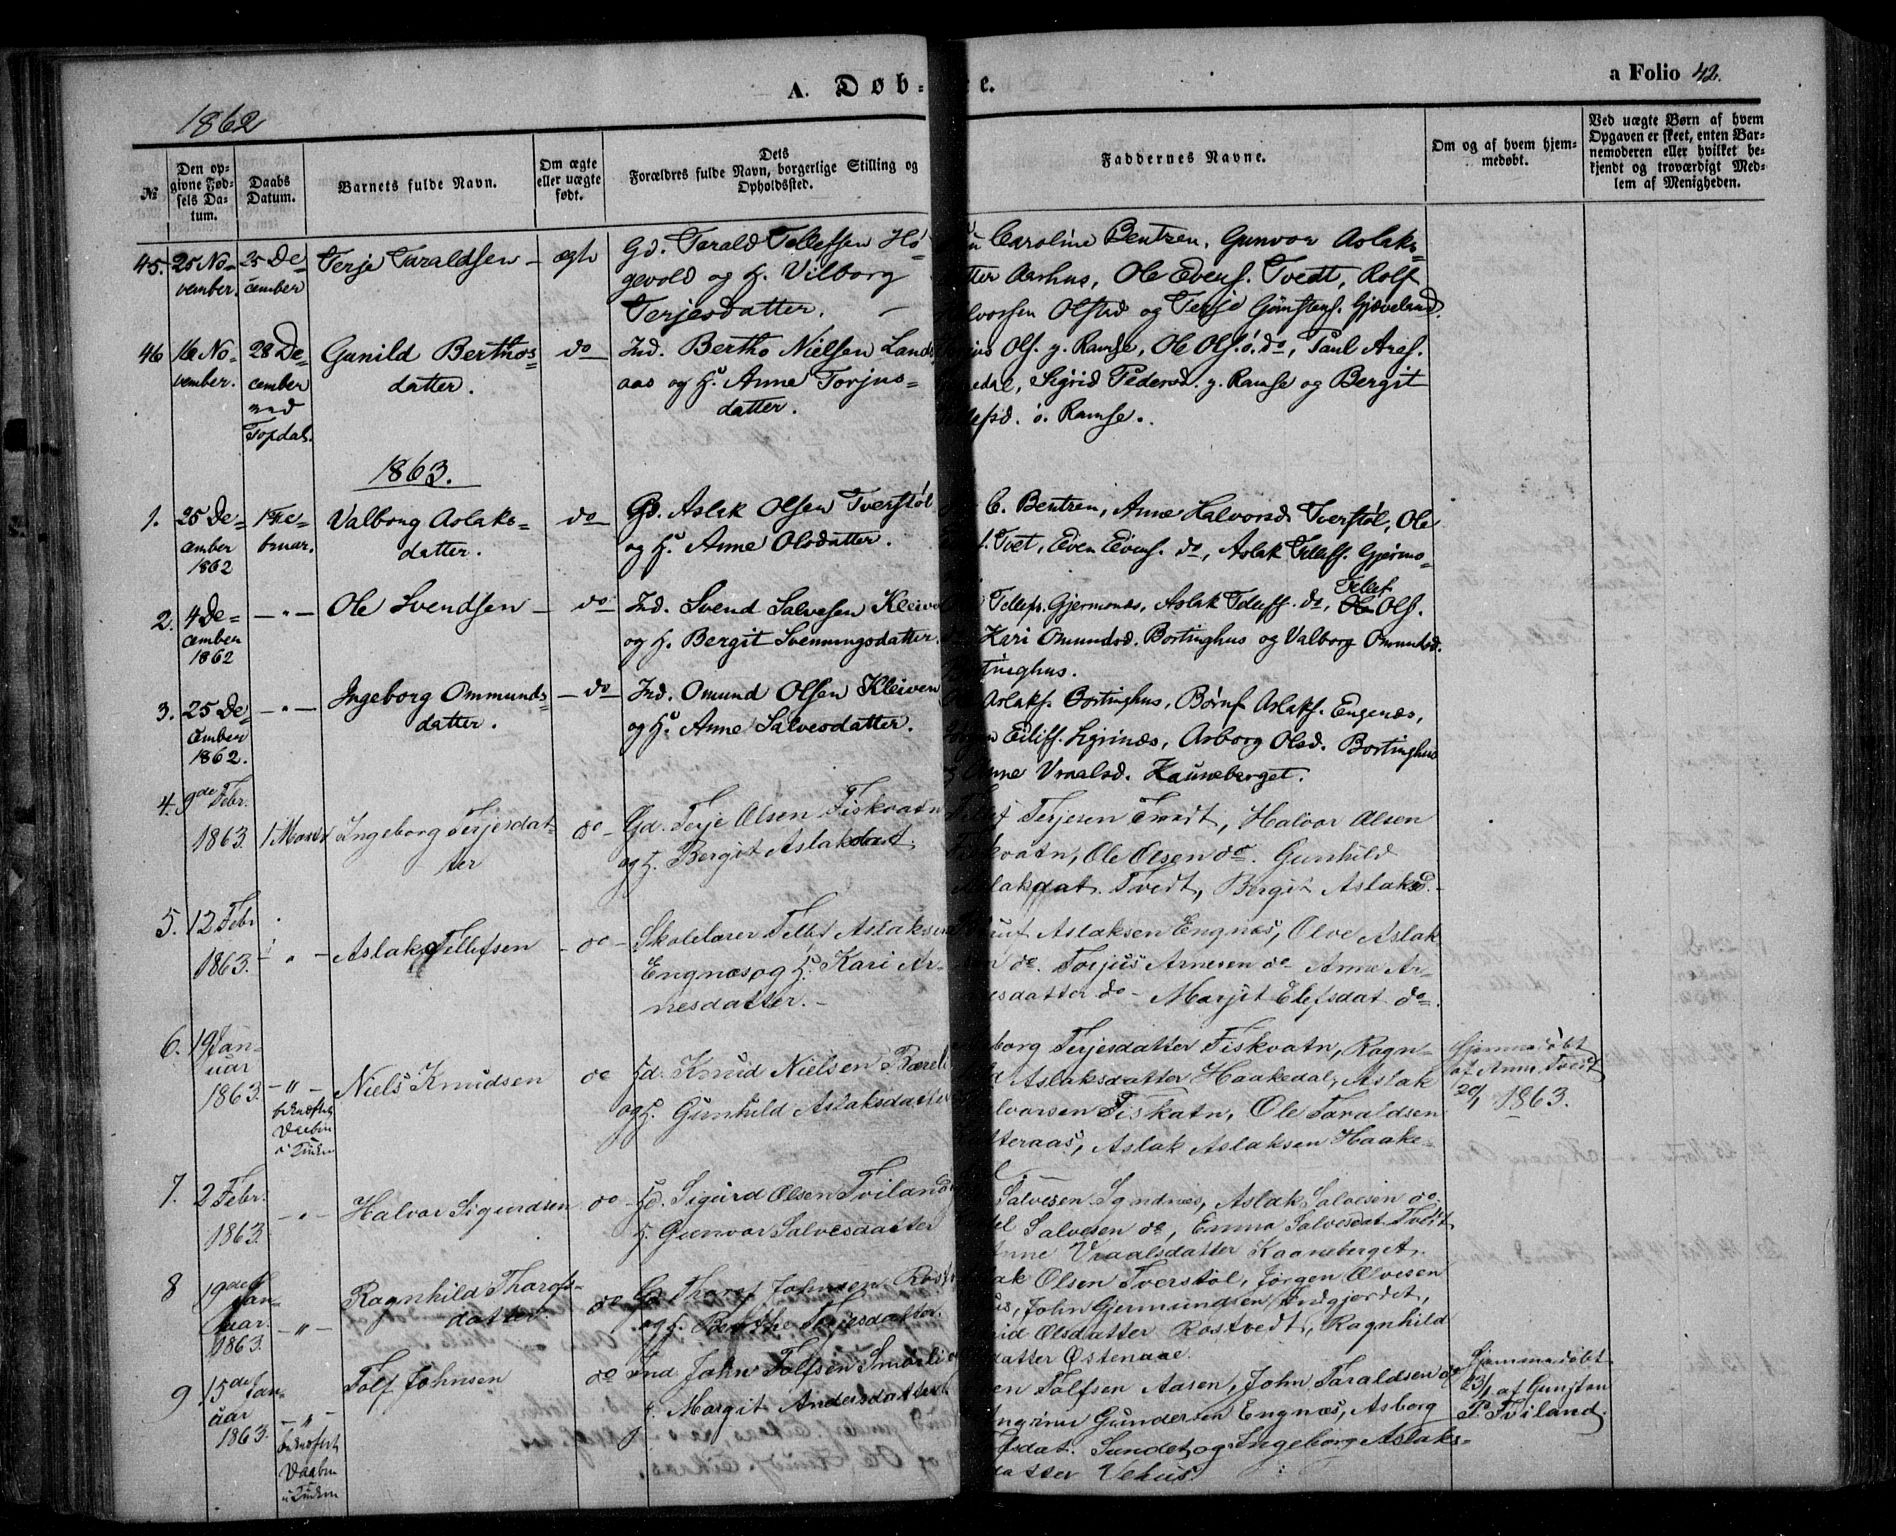 1862
A. Døb-
e.
a Folio 42.
№
Den op-
givne Fød-
sels Da-
tum.
Daabs
Datum.
Barnets fulde Navn.
Om ægte
eller uægte
født.
Dets
Forældres fulde Navn, borgerlige Stilling og
Opholdssted.
Faddernes Navne.
Om og af hvem hjem-
medøbt.
Ved uægte Børn af hvem
Opgaven er skeet, enten Bar-
nemoderen eller hvilket be-
kjendt og troværdigt Med-
lem af Menigheden.
45. 25 No-
vember.
25 De-
cember
Terje Taraldsen
ægte
Gd. Tarald Tellefsen Hø-
gevold og H. Vilborg
Terjesdatter.
Caroline Bentzen, Gunvor Aslaks-
tter Aarhus, Ole Evens. Tvedt, Rolf
lvorsen Olstad og Terje Gunstens. Gjøveland.
46 16 No-
vember.
28 De-
cember
ved
Topdal.
Gunild Berthos-
datter.
do
Ind. Bertho Nielsen Lands
aas og H. Anne Torjus-
datter.
Ols. y. Ramse, Ole Ols. ø. do, Paul Ares.
edal, Sigrid Pedersd. y. Ramse og Bergit
ø. Ramse.
1863.
1. 25 De-
cember
1862
1 Fe-
bruar.
Valborg Aslaks-
datter.
do
Gd. Aslak Olsen Tverstøl
og H. Anne Olsdatter.
C. Bentzen, Anne Halvorsd. Tverstøl, Ole
Tvet, Even Evens. do, Aslak Tellefs. Gjermo-
2. 4 De-
cember
1862
- " -
Ole Svendsen
do
Ind. Svend Salvesen Kleive
og H. Bergit Svenningsdatter.
Tellefs. Gjermonæs, Aslak Tellefs. do, Tellef Ols.
Kari Omundsd. Bortinghus og Valborg Omundsd.
tinghus.
3. 25 De-
cember
1862.
- " -
Ingeborg Ommunds-
datter.
do
Ind. Omund Olsen Kleiven
og H. Anne Salvesdatter.
Aslaks. Bortinghus, Børuf Aslaks. Engenæs,
Eiliff. Ligrinæs, Asborg Olsd. Bortinghus
Anne Vraalsd. Kauneberget.
4. 9de Febr.
1863.
1 Marts
Ingeborg Terjesdat-
ter
do
Gd. Terje Olsen Fiskvatn
og H. Bergit Aslaksdat.
Terjesen Tvedt, Halvor Olsen
skvatn, Ole Olsen do. Gunhild
slaksdat. Tvedt, Bergit Aslaksd.
5. 12 Febr
1863.
- " -
Aslak Tellefsen
do
Skolelærer Tellef Aslaksen
Engnæs og H. Kari Ar-
nesdatter.
Aslaksen Engnæs, Olve Aslak
en do. Torjus Arnesen do Anne Ar-
nesdatter do Marjit Elefsdat do.
6. 19 Jan-
uar
1863.
- " -
bekræftet
Daaben
i Kirken
Niels Knudsen
do
Gd. Knud Nielsen
og H. Gunhild Aslaksdatter
borg Terjesdatter Fiskvatn, Ragn-
Aslaksdatter Haakedal, Aslak
lvorsen Fiskatn, Ole Taraldsen
tteraas, Aslak Aslaksen Haake-
Hjemmedøbt
af Anne Tvedt
20/1 1863.
7. 2 Febr.
1863.
- " -
Halvor Sigurdsen
do
Gd. Sigurd Olsen Tviland
H. Gunvor Salvesdatter
Salvesen Syndnæs, Aslak Salvesen do.
Salvesen do, Emma Salvesdat Tvet
Anne Vraalsdatter Kaaneberget.
8 19de
Jan-
uar.
1863.
- " -
Ragnhild Tharofs-
datter
do
Gd. Tharof Johnsen
og H. Berthe Terjesdatter.
Olsen Tverstøl, Jørgen Olvesen
John Gjermundsen
Olsdatter Rostvedt, Ragnhild
datter Østenaae.
9 15de Jan-
uar
1863.
- " -
bekræftet
Daaben
i Kirken
Tolf Johnsen
do
Ind John Tolfsen Smørli
H. Margit Andersdatter
Tolfsen Aasen, John Taraldsen do
Gundersen Engnæs, Asborg
sdat. Sundet og Ingeborg Aslaks-
datter Vehus.
Hjemmedøbt
23/1 af Gunsten
P. Tviland.